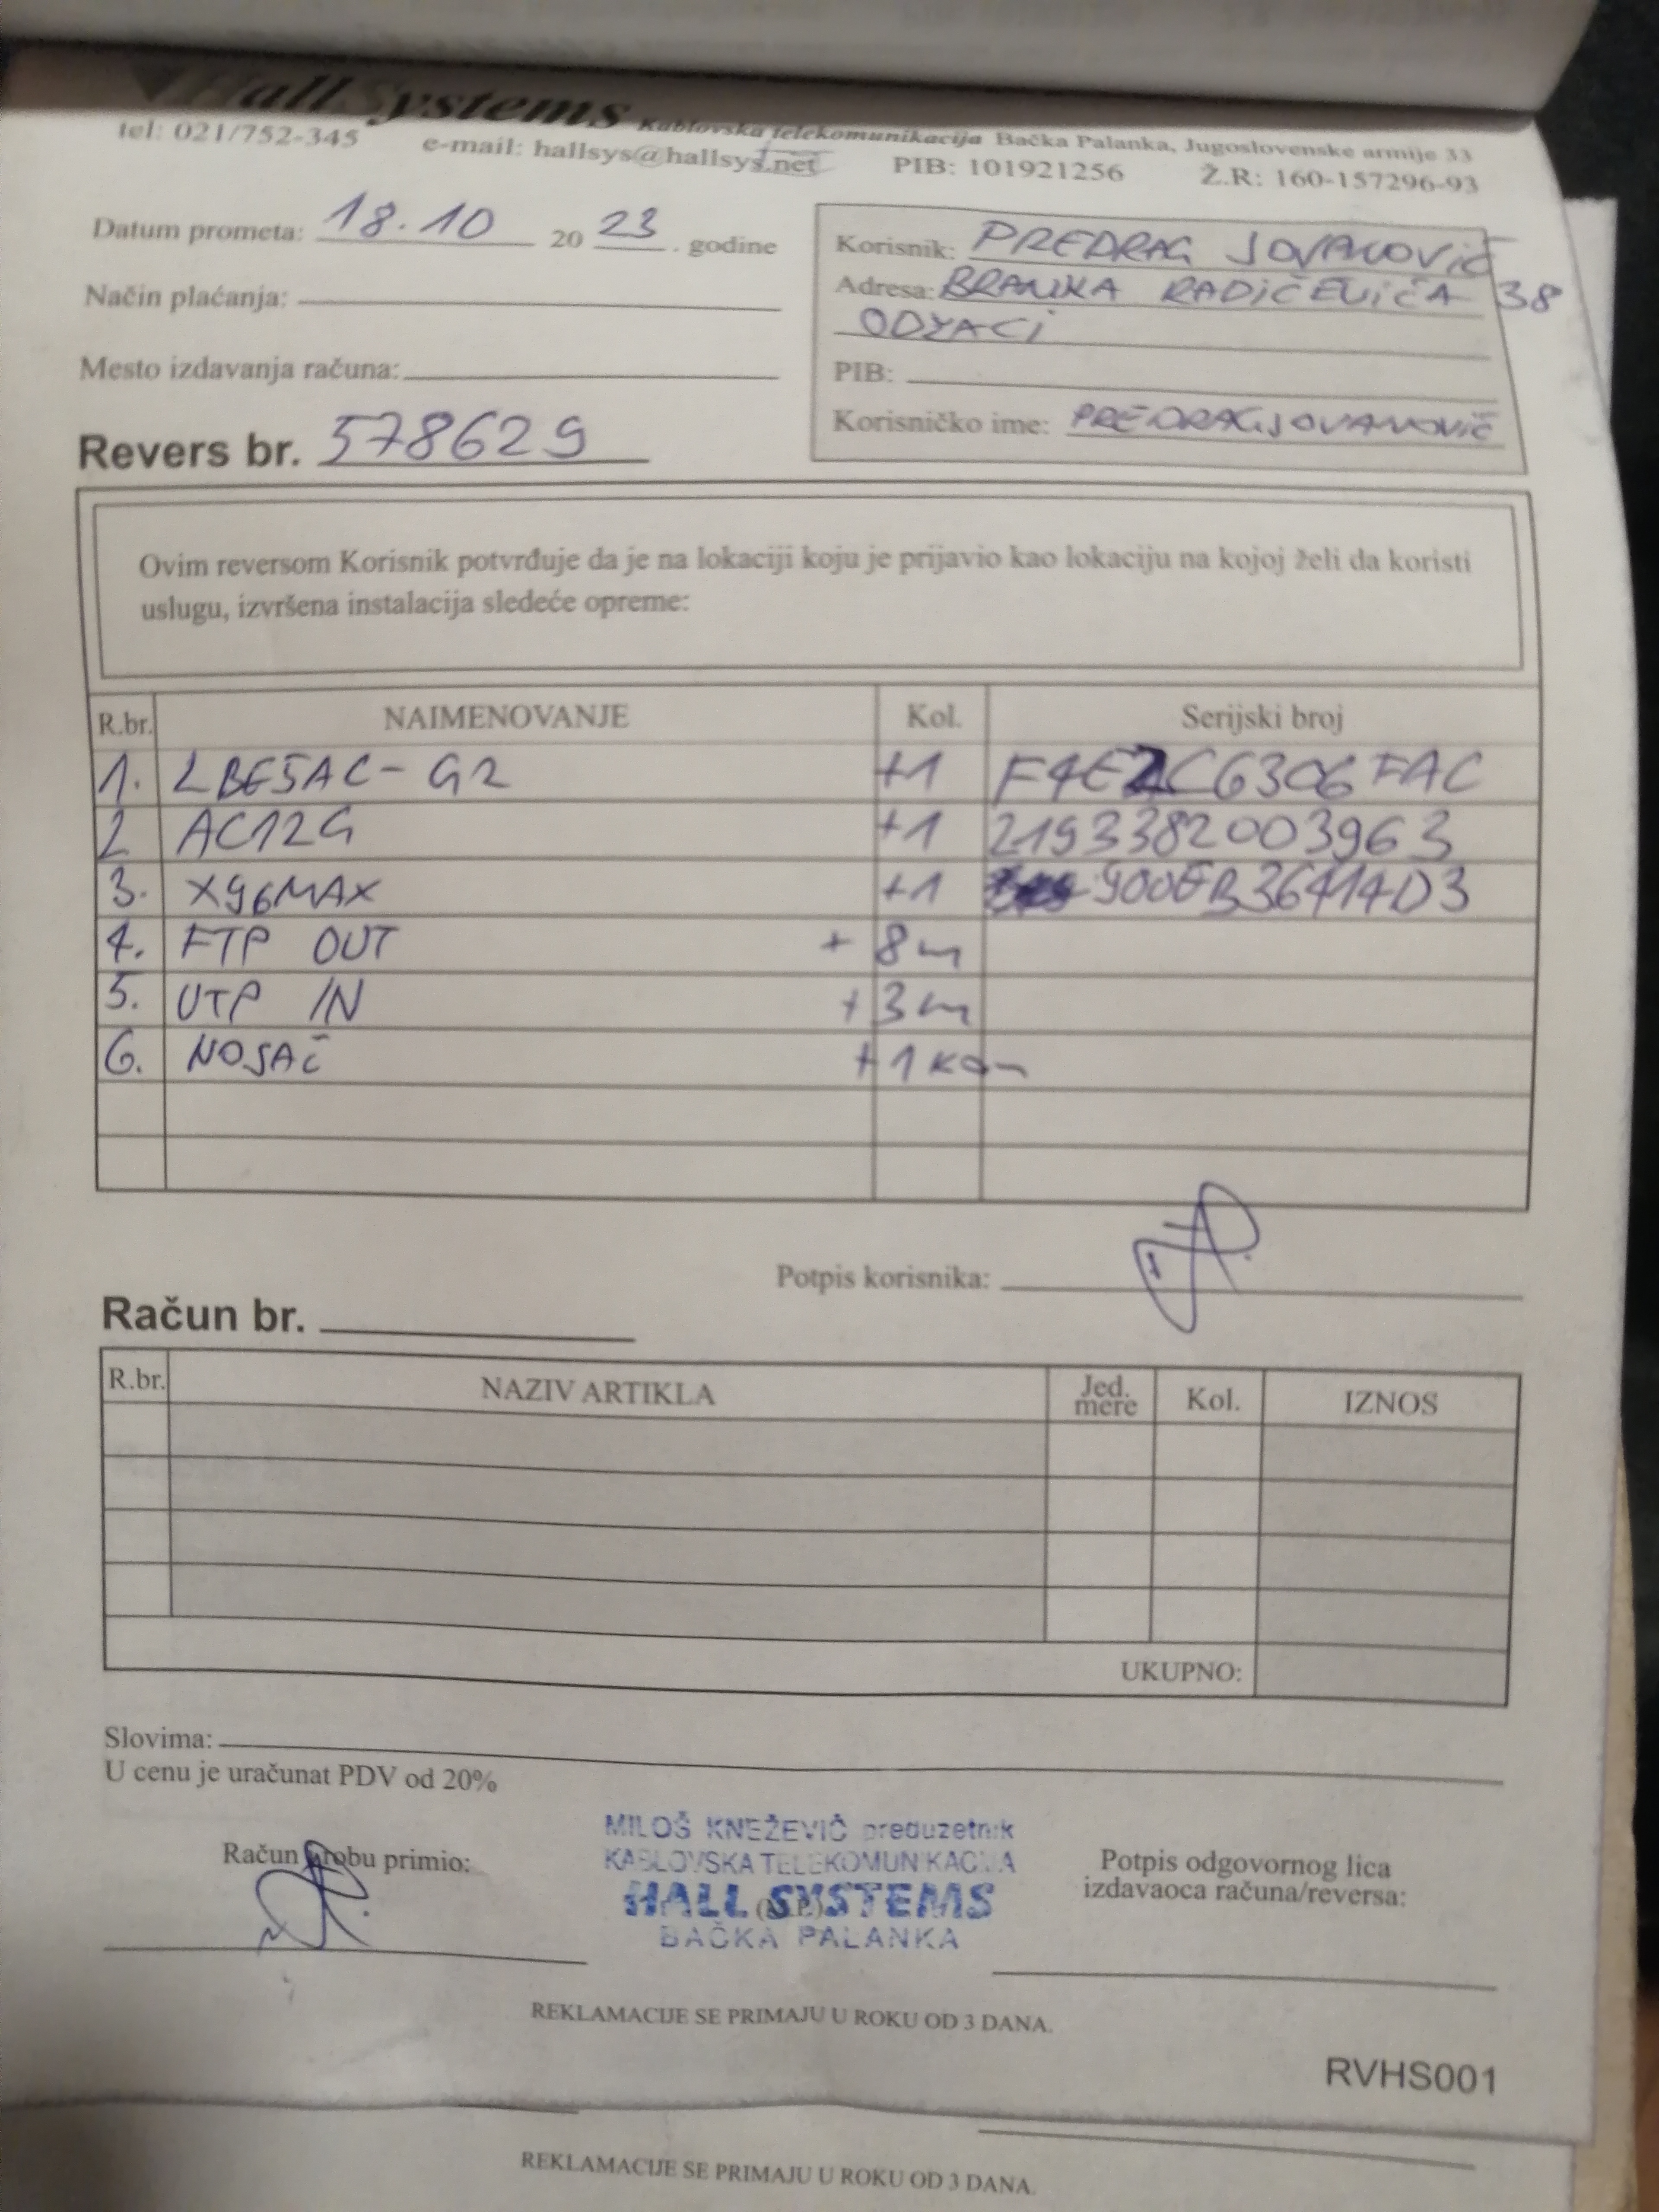 Hall Systems Kablovska telekomunikacija Bačka Palanka, Jugoslovenske armije 33
tel: 021/752-345 e-mail: hallsys@hallsys.net PIB: 101921256 Ž.R: 160-157296-93
Datum prometa: 18.10 2023. godine
Način plaćanja:
Mesto izdavanja računa:
Revers br. 578629
Korisnik: PREDRAG JOVANOVIĆ
Adresa: BRANKA RADIČEVIĆA 38
ODŽACI
PIB:
Korisničko ime: PREDRAGJOVANOVIĆ
Ovim reversom Korisnik potvrđuje da je na lokaciji koju je prijavio kao lokaciju na kojoj želi da koristi
uslugu, izvršena instalacija sledeće opreme:
R.br. NAIMENOVANJE Kol. Serijski broj
1. LBE5AC-G2 +1 F4E2C6306FAC
2 AC12G +1 2193382003963
3. X96MAX +1 900EB36414D3
4. FTP OUT + 8m
5. UTP IN + 3m
6. NOSAČ +1 kom
Potpis korisnika:
Račun br.
R.br. NAZIV ARTIKLA Jed. mere Kol. IZNOS
UKUPNO:
Slovima:
U cenu je uračunat PDV od 20%
Račun robu primio:
MILOŠ KNEŽEVIĆ preduzetnik
KABLOVSKA TELEKOMUNIKACIJA
HALL SYSTEMS
(M.P.)
BAČKA PALANKA
Potpis odgovornog lica
izdavaoca računa/reversa:
REKLAMACIJE SE PRIMAJU U ROKU OD 3 DANA.
RVHS001
REKLAMACIJE SE PRIMAJU U ROKU OD 3 DANA.